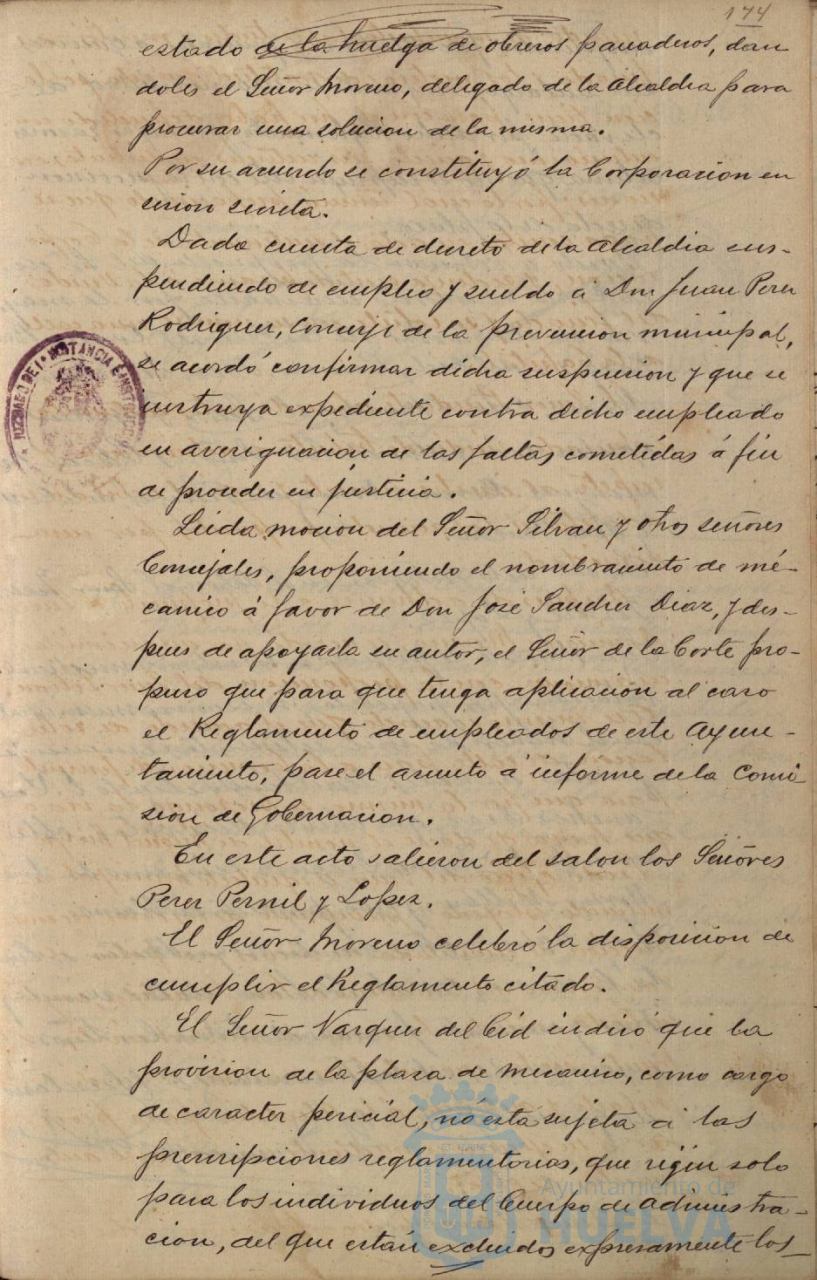 174
estado de la huelga de obreros panaderos, dan
doles el Señor Moreno, delegado de la Alcaldia para
procurar una solucion de la misma.
Por su acuerdo se constituyó la Corporacion en
sesion secreta.
Dada cuenta de decreto de la Alcaldia sus-
pendiendo de empleo y sueldo á Don Juan Perez
Rodriguez, Conserje de la prevencion municipal,
se acordó confirmar dicha suspension y que se
instruya expediente contra dicho empleado
en averiguacion de las faltas cometidas á fin
de proceder en justicia.
Leida mocion del Señor Silvan y otros señores
Concejales, proponiendo el nombramiento de mé-
canico á favor de Don José Sanchez Diaz, y des-
pues de apoyarla su autor, el Señor de la Corte pro-
puso que para que tenga aplicacion al caso
el Reglamento de empleados de este Ayun-
tamiento, pase el asunto á informe de la Comi
sion de Gobernacion.
En este acto salieron del salon los Señores
Perez Pernil y Lopez.
El Señor Moreno celebró la disposicion de
cumplir el Reglamento citado.
El Señor Vazquez del Cid indicó que la
provision de la plaza de mecanico, como cargo
de caracter pericial, no esta sujeta á las
prescripciones reglamentarias, que rigen solo
para los individuos del Cuerpo de Administra-
cion, del que estan excluidos expresamente los
JUZGADO DE 1ª INSTANCIA É INSTRUCCION
Ayuntamiento de
HUELVA